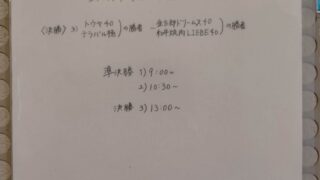 〈決勝〉3) トウヤ40
テラバル鴨 の勝者 - 金太郎ドリームス40
和牛焼肉LIEBE40 の勝者
準決勝 1) 9:00~
2) 10:30~
決勝 3) 13:00~